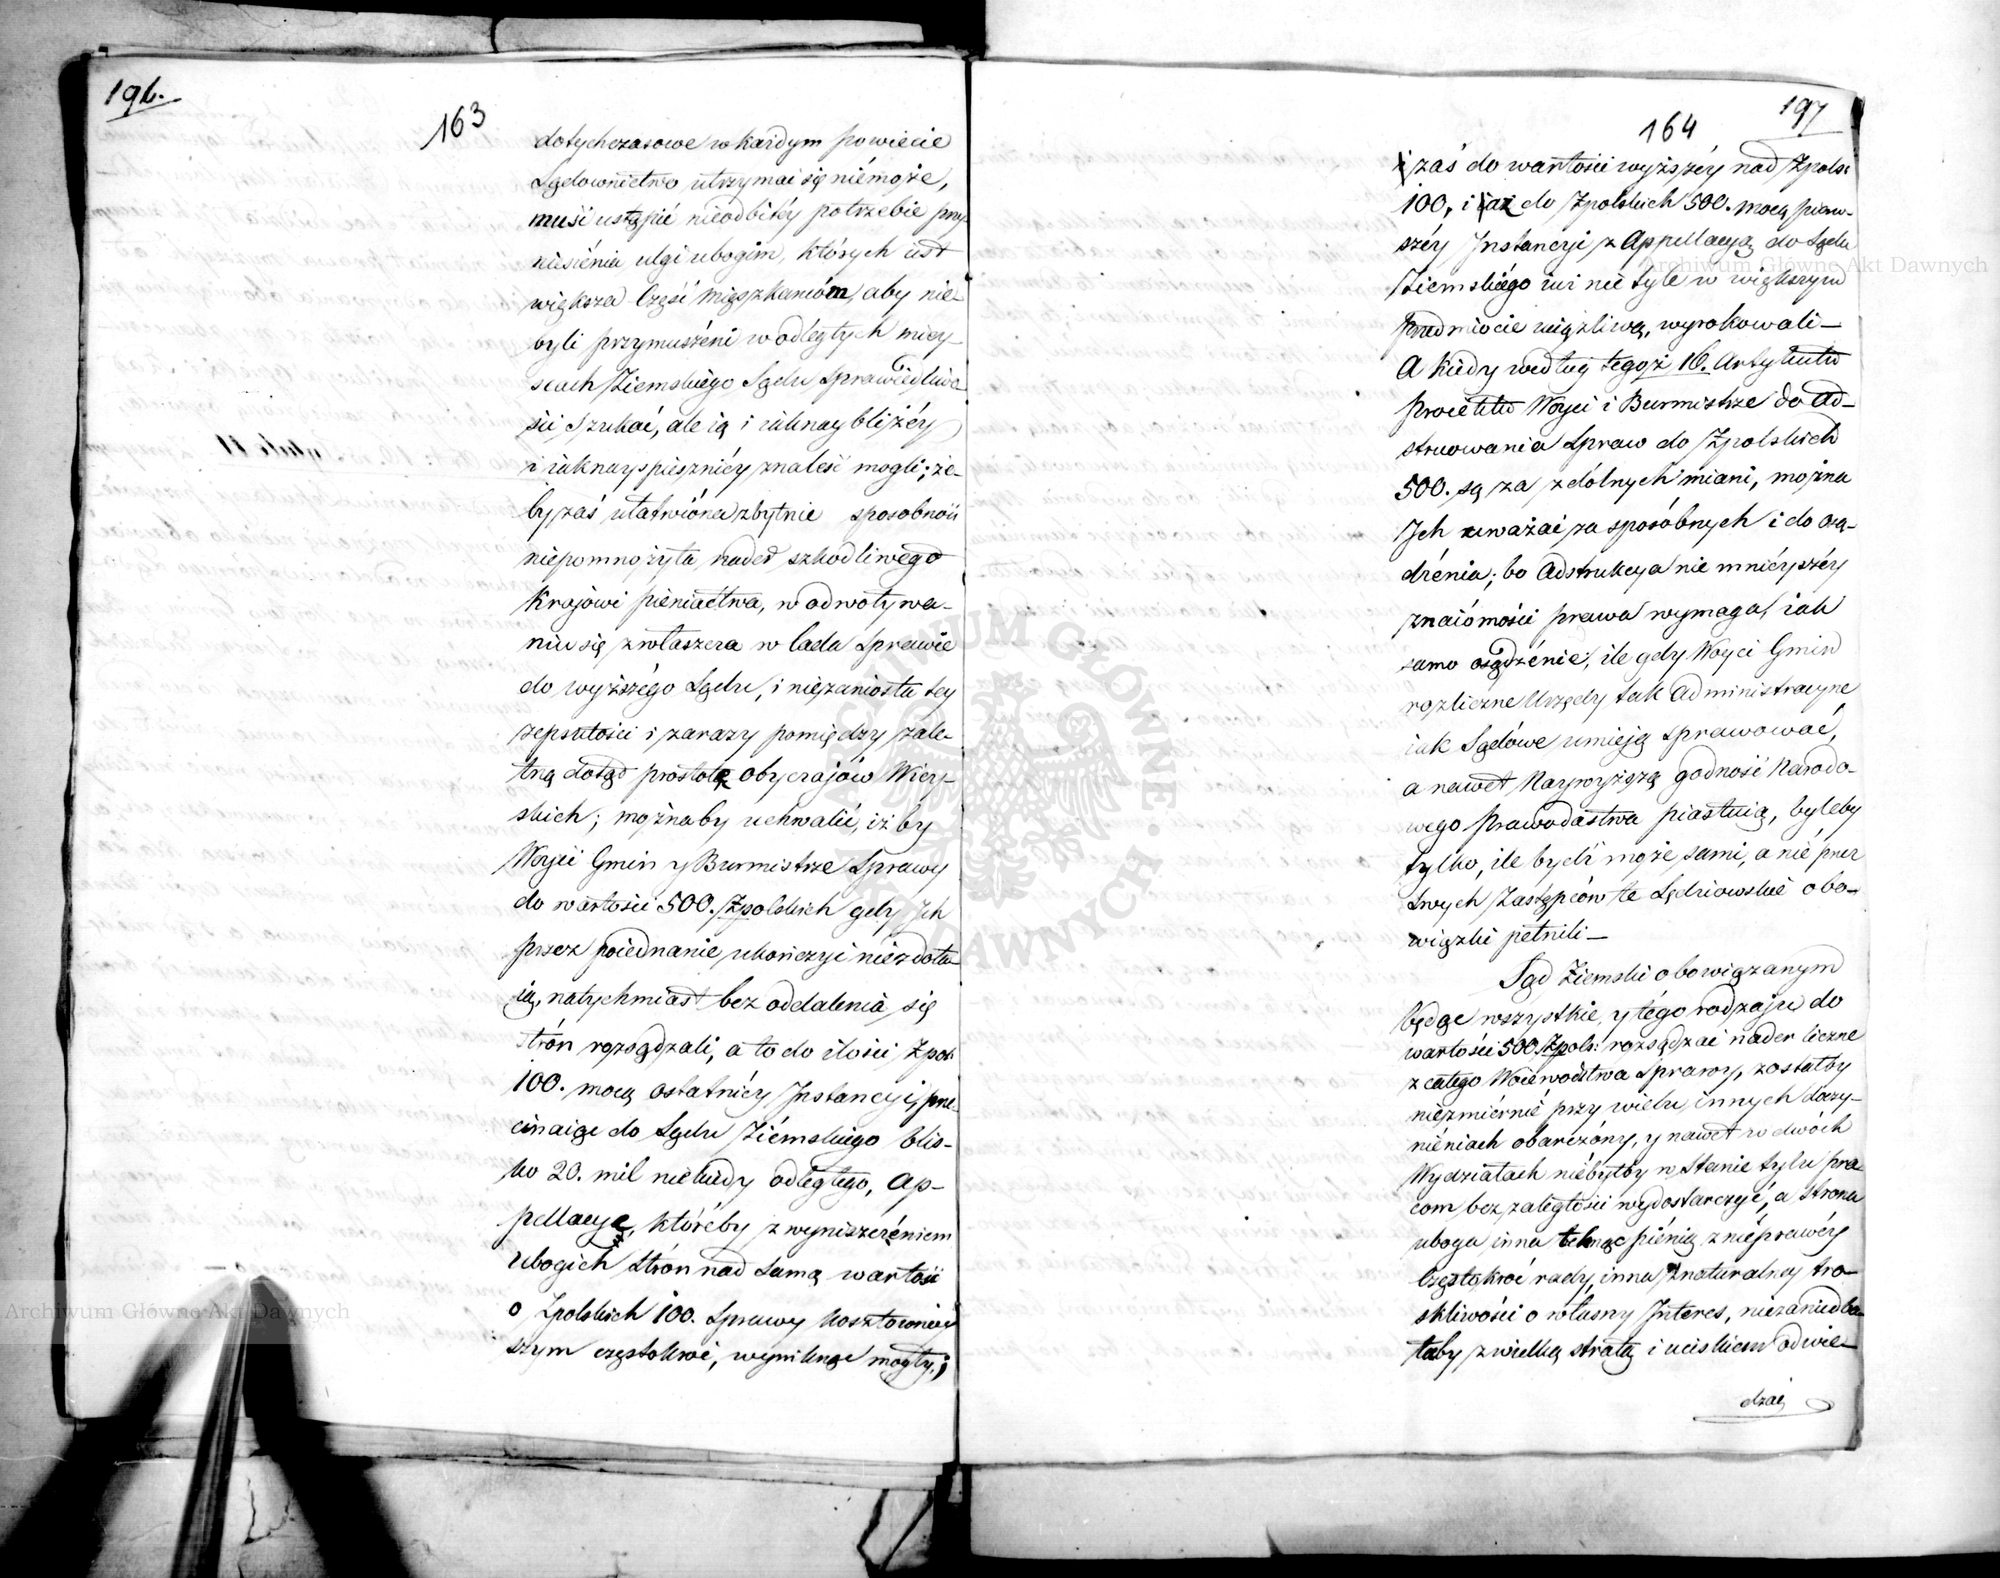 196.
163
dotychczasowe w każdym powiecie
Sądownictwo utrzymać się niemoże,
musi ustąpić nieodbitéy potrzebie przy-
niesiénia ulgi ubogim, których iest
większa Część Mięszkańców, aby nie-
byli przymuszéni w odległych miey-
scach Ziemskiégo Sądu sprawiedliwo-
ści szukać, ale ią i iaknaybliżéy
i iaknayspieszniéy znaleść mogli; że-
by zaś ułatwióna zbytnie sposobność
niepomnożyła nader szkodliwego
Krajowi pieniactwa, w odwoływa-
niu się zwłaszcza w lada sprawie
do wyższégo Sądu, i niezaniosła tey
zepsutości i zarazy pomiędzy zale-
tną dotąd prostotę obyczajów Wiey-
skich; możnaby uchwalić, iżby
Woyci Gmin y Burmistrze Sprawy
do wartości 500. Zpolskich gdy Jch
przez poiednanie ukończyć niezdoła-
ią, natychmiast bez oddalenia się
Strón rozsądzali, a to do ilości Zpol:
100. mocą ostatniéy Jnstancyi, prze-
cinaiąc do Sądu Ziémskiego blis-
ko 20. mil niekiedy odległego, Ap-
pellacyę, któréby z wyniszczéniem
Ubogich Strón nad samą wartość
o Zpolskich 100. Sprawy kosztowniey-
szym częstokroć, wyniknąć mogły;
164
197
zaś do wartości wyższéy nad Zpols:
100, i aż do Zpolskich 500. mocą pierw-
széy Jnstancyi z Appellacyą do Sądu
Ziemskiégo iuż nie tyle w większym
Przedmiocie uciążliwą, wyrokowali —
A kiedy według tegoż 16. Artykułu
Proiektu Woyci i Burmistrze do Ad-
struowania Spraw do Zpolskich
500. są za zdólnych miani, można
Jch uważać za sposóbnych i do osą-
dzénia; bo Adstrukcya nie mniéyszéy
znaiómości prawa wymaga, iak
samo osądzénie, ile gdy Woyci Gmin
rozliczne Urzędy tak Administracyne
iak Sądówe umieją sprawować,
a nawet Naywyższą godność Narodo-
wego Prawodastwa piastuią, byleby
tylko, ile bydź może, sami, a nié przez
swych Zastępców te Sędziowskié obo-
wiązki pełnili —
Sąd Ziemski obowiązanym
będąc wszystkie, y tégo rodzaju do
wartości 500. Zpols: rozsądzać nader liczne
z całego Woiewodztwa Sprawy, zostałby
niezmiérnié przy wielu innych docży-
niéniach obarczóny, y nawet w dwóch
Wydziałach niébyłby w stanie tylu pra-
com bez zaległości wydostarczyć, a strona
uboga inna tchnąc piénią z niéprawéy
Częstokroć rady, inna z naturalney tro-
skliwości o własny Jnteres, niezaniedba-
łaby z wielką stratą i uciskiem odwie-
dzać
Archiwum Główne Akt Dawnych
Archiwum Główne Akt Dawnych
ARCHIWUM GŁÓWNE AKT DAWNYCH